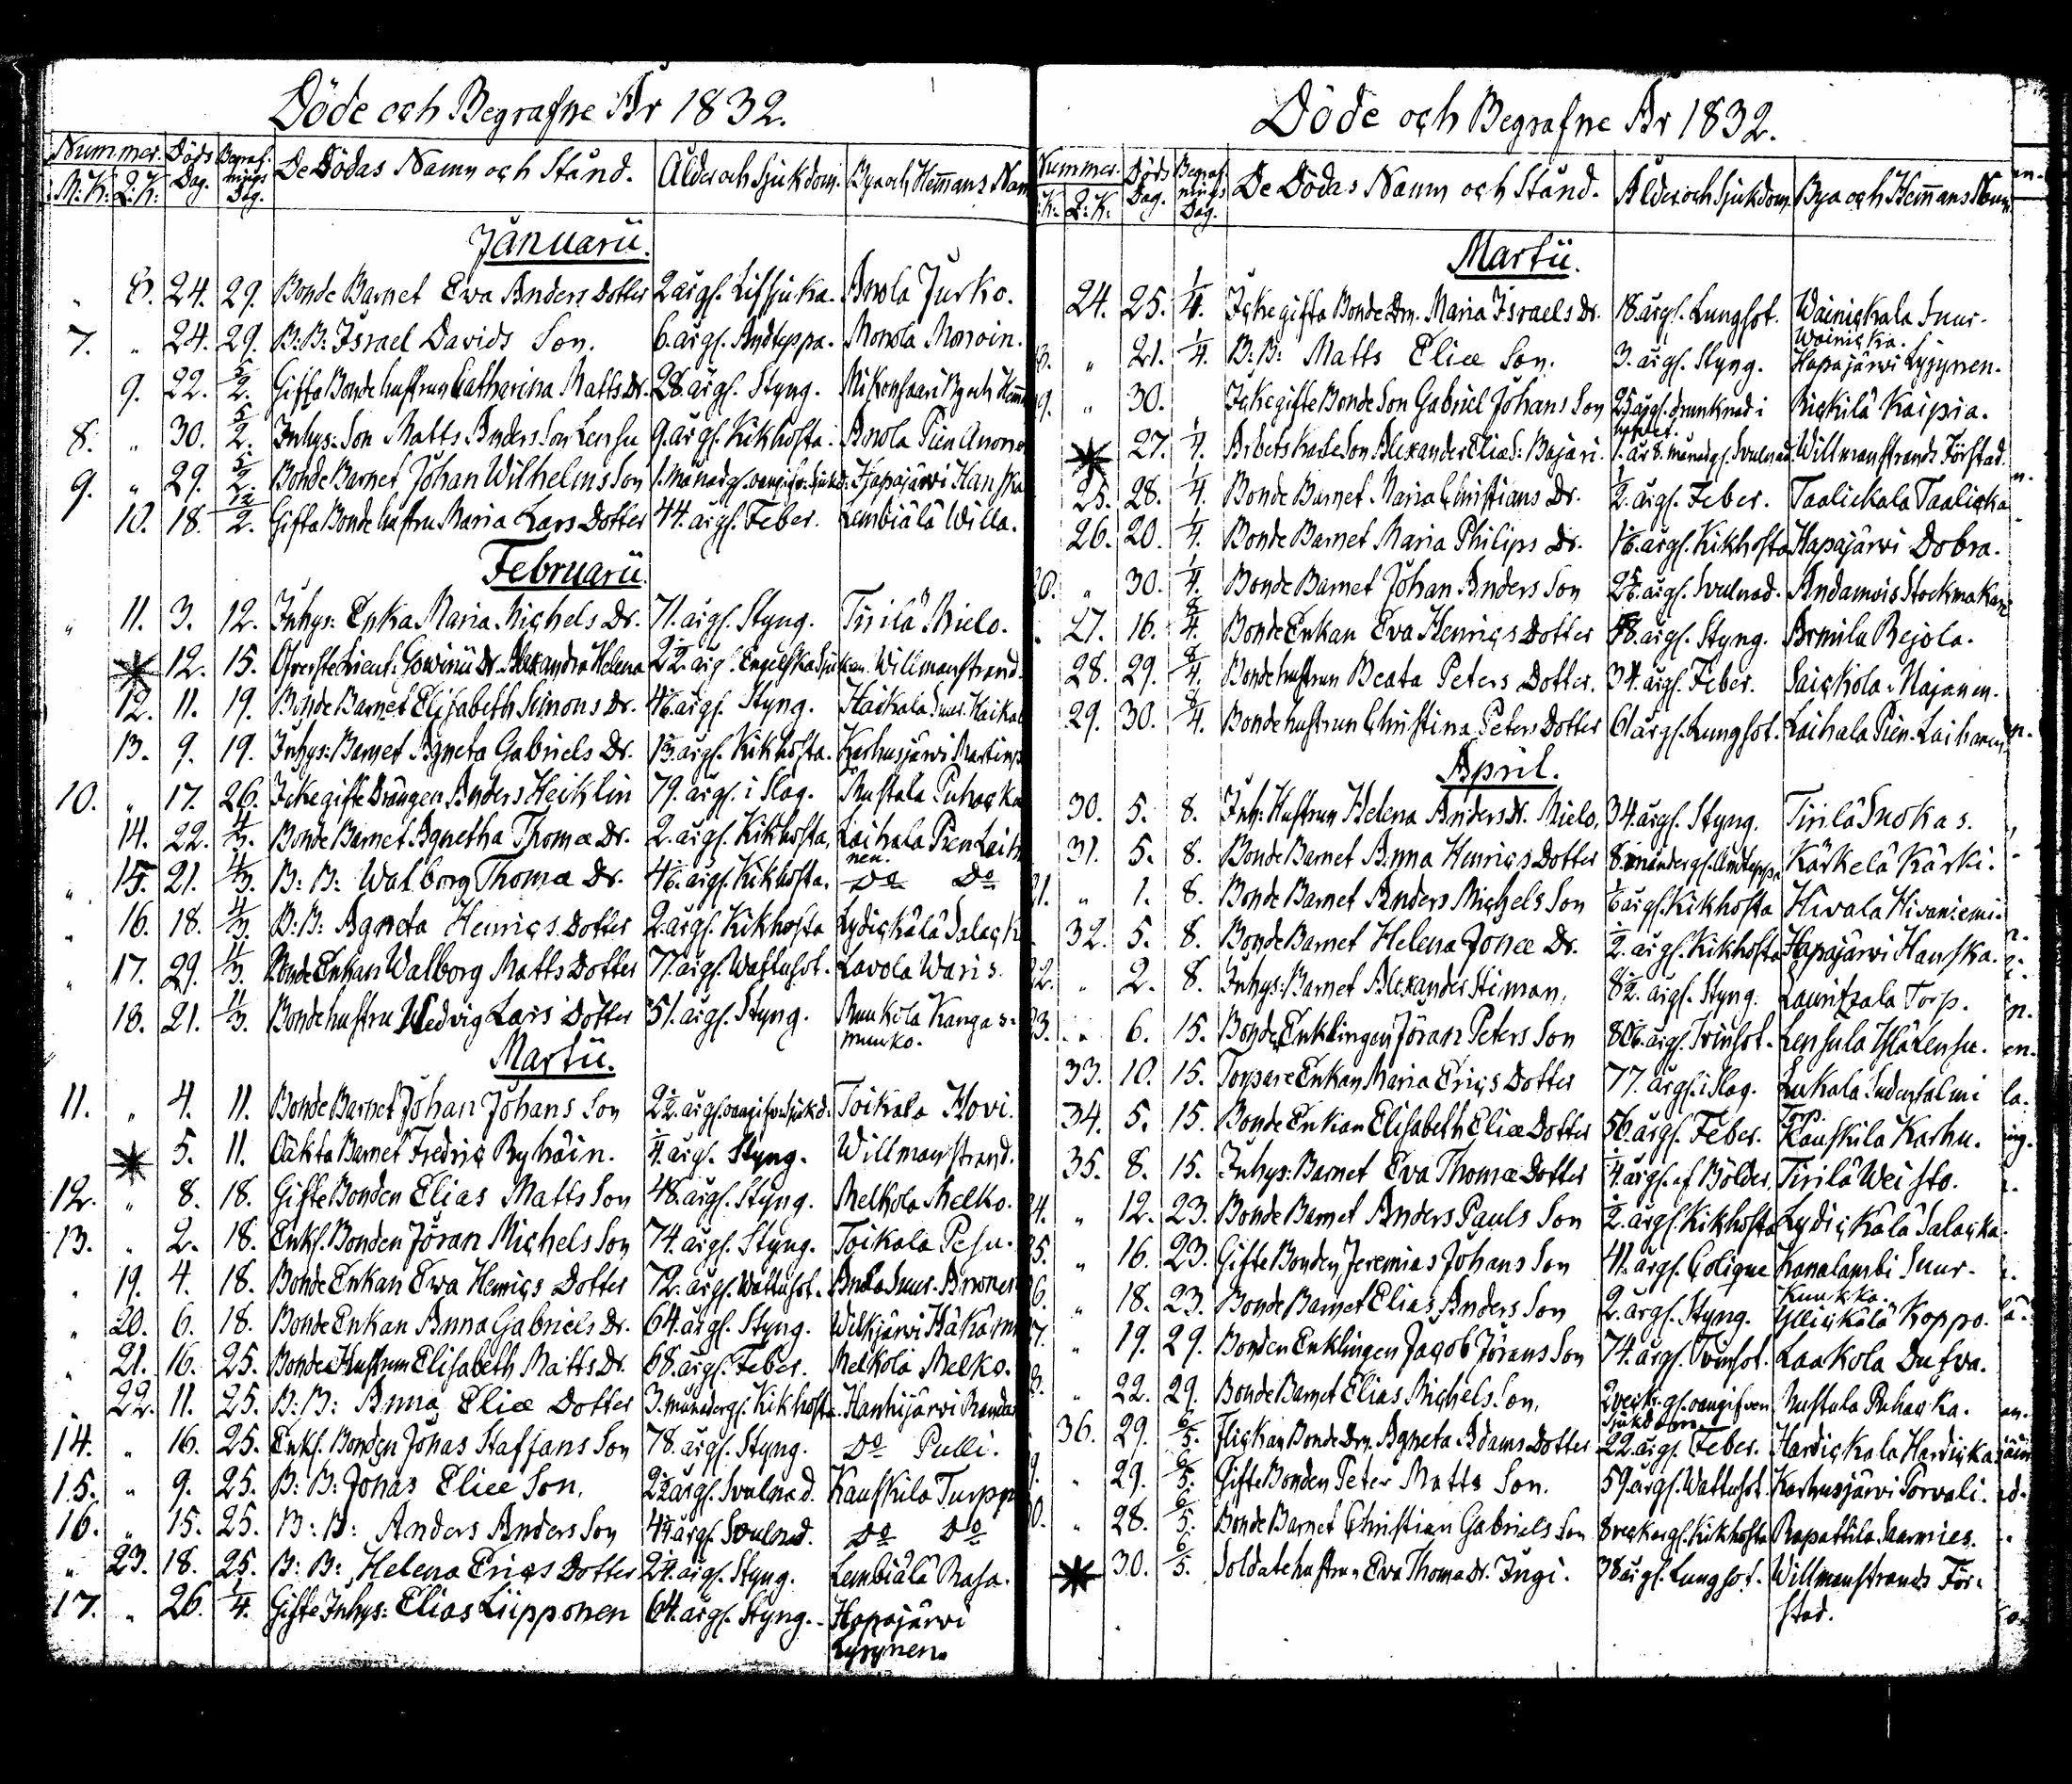 Döde och Begrafne År 1832.
Nummer. Döds Dag. Begrafnings Dag. De Dödas Namn och Stånd. Ålder och Sjukdom. Bya och Hemans Nam
M:K: L:K:
Januarii.
„ 8. 24. 29. Bonde Barnet Eva Anders Dotter 2 årgl. Lifsjuka. Anola Jurko.
7. „ 24. 29. B:B: Israel Davids Son. 6. årgl. Andteppa. Monola Monoin.
9. 22. 5/2. Gifta Bonde hustrun Catharina Matts Dr. 28. årgl. Styng. Mikonsaari
8. „ 30. 5/2. Inhys: Son Matts Anders Son Lensu 9. årgl. Kikhosta. Anola Pien Anone
9. „ 29. 5/2. Bonde Barnet Johan Wilhelms Son 1. månadgl. oangifv. sjukd: Hapajärvi Hanska
10. 18. 12/2. Gifta Bonde hustru Maria Lars Dotter 44. årgl. Feber. Lembiälä Willa.
Februarii.
„ 11. 3. 12. Inhys: Enka Maria Michels Dr. 71. årgl. Styng. Tirilä Mielo.
12. 15. Öfverste Lieut: Gowinii Dr. Alexandra Helena 2 1/2. årgl. Engelska Sjukan. Willmanstrand.
12. 11. 19. Bonde Barnet Elisabeth Simons Dr. årgl. Styng. Haikala Suur. Haikal
13. 9. 19. Inhys: Barnet Agneta Gabriels Dr. årgl. Kikhosta. Karhusjärvi Martinp
10. „ 17. 26. Icke gifte Drängen Anders Heiklin 79. årgl. i Slag. Mustala Puhacka
14. 22. 4/3. Bonde Barnet Agnetha Thomæ Dr. 2. årgl. Kikhosta. Laihala Pien Laiha
nen.
„ 15. 21. 4/3. B:B: Walborg Thomæ Dr. årgl. Kikhosta. Do Do
„ 16. 18. 4/3. B:B: Agneta Henrics Dotter 2. årgl. Kikhosta Lydickälä Salack
„ 17. 29. 4/3. Bonde Enkan Walborg Matts Dotter 71. årgl. Wattusot. Lavola Waris.
18. 21. 11/3. Bonde hustru Hedvig Lars Dotter 51. årgl. Styng. Muukola Kangas-
muuko.
Martii.
11. „ 4. 11. Bonde Barnet Johan Johans Son 2 1/2. årgl. oangifv. Sjukd: Toikala Hovi.
5. 11. Oäkta Barnet Fredric Ryhäin. 1/4. årgl. Styng. Willmanstrand.
12. „ 8. 18. Gifte Bonden Elias Matts Son 48. årgl. Styng. Melkola Melko.
13. „ 2. 18. Enkl. Bonden Jöran Michels Son 74. årgl. Styng. Toikala Pesu.
„ 19. 4. 18. Bonde Enkan Eva Henrics Dotter 72. årgl. Wattusot. Anola Suur. Anonen
„ 20. 6. 18. Bonde Enkan Anna Gabriels Dr. 64. årgl. Styng. Wilkjärvi Häkäm
„ 21. 16. 25. Bonde Hustrun Elisabeth Matts Dr. 68. årgl. Feber. Melkola Melko.
„ 22. 11. 25. B:B: Anna Eliæ Dotter 3. månadergl. Kikhosta. Hanhijärvi Randa
14. „ 16. 25. Enkl. Bonden Johas Staffans Son 78. årgl. Styng. Do Pulli.
15. „ 9. 25. B:B: Johas Eliæ Son. 2 1/2 årgl. Svulnad. Kauskila Turpp
16. „ 15. 25. B:B: Anders Anders Son årgl. Svulnad. Do Do
„ 23. 18. 25. B:B: Helena Erics Dotter 2 1/4. årgl. Styng. Lembiälä Rasa.
17. „ 26. 1/4. Gifte Inhys: Elias Liipponen 64. årgl. Styng. Hapajärvi
Lyyynen.
Döde och Begrafne År 1832.
Nummer. Döds Dag. Begrafnings Dag. De Dödas Namn och Stånd. Ålder och Sjukdom. Bya och Hemans Nam
:K: L:K.
Martii.
24. 25. 1/4. Icke gifta Bonde Drn. Maria Israels Dr. 18. årgl. Lungsot. Wainickala Suur-
Wainicka.
8. „ 21. 1/4. B:B: Matts Eliæ Son. 3. årgl. Styng. Hapajärvi Lyyynen.
9. „ 30. Icke gifte Bonde Son Gabriel Johans Son 25 årgl. drunknad i Rickilä Kaipia.
27. 1/4. Arbets Karls Son Alexander Elias: Bajari. 1. år 8. månadgl. Svulnad. Willmanstrands Förstad.
25. 28. 1/4. Bonde Barnet Maria Christians Dr. 1/2. årgl. Feber. Taalickala Taalicka
26. 20. 1/4. Bonde Barnet Maria Philips Dr. årgl. Kikhosta Hapajärvi Dobra.
20. „ 30. 1/4. Bonde Barnet Johan Anders Son årgl. Svulnad. Andamois Stockmakari
27. 16. 8/4. Bonde Enkan Eva Henrics Dotter årgl. Styng. Armila Rejola.
28. 29. 8/4. Bonde hustrun Beata Peters Dotter. 34. årgl. Feber. Saickola Najanen.
29. 30. 8/4. Bonde hustrun Christina Peters Dotter 61 årgl. Lungsot. Laihala Pien-Laihanen
April.
30. 5. 8. Inh: Hustrun Helena Anders Dr. Mielo. 34. årgl. Styng. Tirilä Suokas.
31. 5. 8. Bonde Barnet Anna Henrics Dotter 8. månadergl. Andteppa Kärkelä Kärki.
21. „ 1. 8. Bonde Barnet Anders Michels Son 1/6 årgl. Kikhosta Hivala Hivaniemi.
32. 5. 8. Bonde Barnet Helena Jonæ Dr. 1/2. årgl. Kikhosta Hapajärvi Hanska.
22. „ 2. 8. Inhys: Barnet Alexander Stiman. 8 1/2. årgl. Styng. Lauritzala Torp.
23. „ 6. 15. Bonde Enklingen Jöran Peters Son årgl. Tvinsot. Lensula Ylä Lensu.
33. 10. 15. Torpare Enkan Maria Erics Dotter 77. årgl. i Slag. Lukala Sudensalmi
Torp.
34. 5. 15. Bonde Enkan Elisabeth Eliæ Dotter 56. årgl. Feber. Kauskila Karhu.
35. 8. 15. Inhys: Barnet Eva Thomæ Dotter 1/4. årgl. af Bölder. Tirilä Weisto.
24. „ 12. 23. Bonde Barnet Anders Pauls Son 1/2. årgl. Kikhosta Lydickälä Salacka.
25. „ 16. 23. Gifte Bonden Jeremias Johans Son 41. årgl. Colique Kanalambi Suur-
Kuukka.
26. „ 18. 23. Bonde Barnet Elias Anders Son 2. årgl. Styng. Yllickälä Koppo.
27. „ 19. 29. Bonden Enklingen Jacob Jörans Son 74. årgl. Tvinsot. Laakola Dufva.
28. „ 22. 29. Bonde Barnet Elias Michels Son. 2 veck:gl. oangifven Mustala Puhacka.
Sjukdom.
36. 29. 6/5. Flickan Bonde Drn. Agneta Adams Dotter 22. årgl. Feber. Hardickala Hardicka
9. „ 29. 6/5. Gifte Bonden Peter Matts Son. 59. årgl. Wattusot. Karhusjärvi Porvali.
0. „ 28. 6/5. Bonde Barnet Christian Gabriels Son 8 veckorgl. Kikhosta Rapattila Saarnies.
30. 6/5. Soldatehustrun Eva Thomæ Dr. Jugi. 38 årgl. Lungsot. Willmanstrands För-
stad.